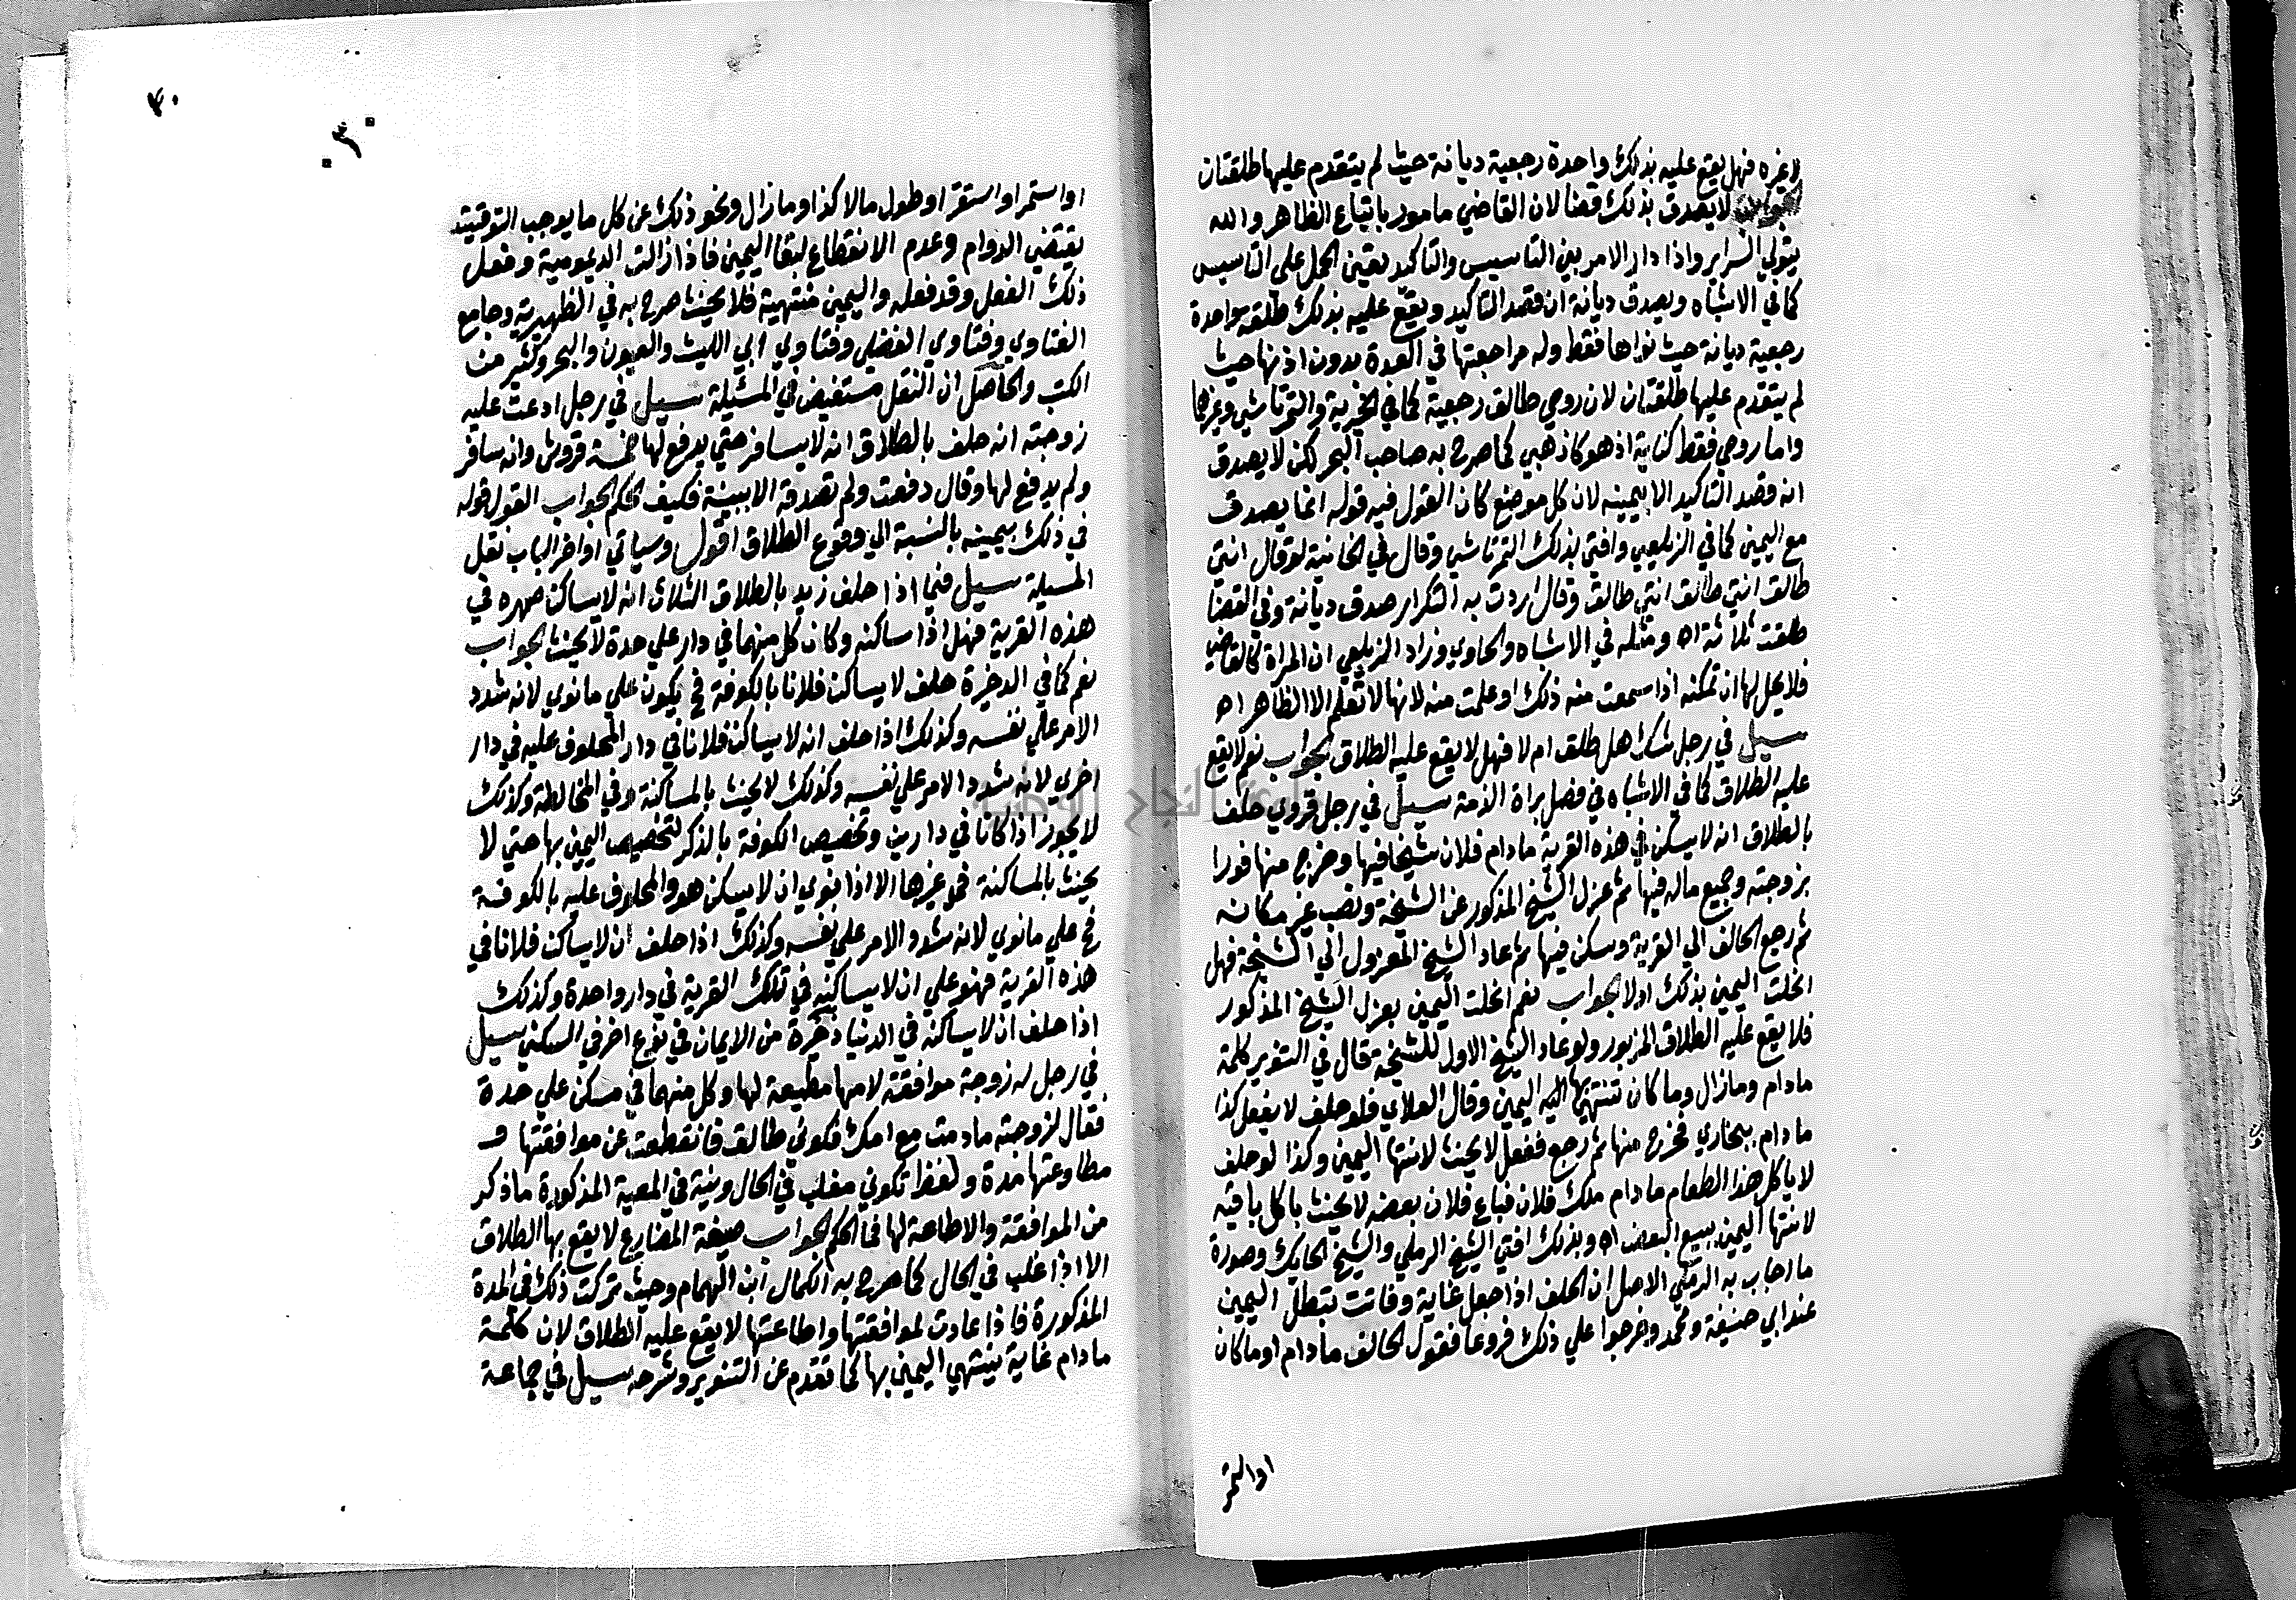 لا غيره فهل يقع عليه بذلك واحدة رجعية ديانة حيث لم يتقدم عليها طلقتان
الجواب لا يصدق بذلك قضا لان القاضي مامور باتباع الظاهر والله
يتولي السراير واذا دار الامر بين التاسيس والتاكيد يتعين الحمل علي التاسيس
كما في الاشباه ويصدق ديانة ان قصد التاكيد ويقع عليه بذلك طلقة واحدة
رجعية ديانة حيث نواها فقط وله مراجعتها في العدة بدون اذنها حيث
لم يتقدم عليها طلقتان لان روحي طالق رجعية كما في الخيرية والتمرتاشي وغيرها
واما روحي فقط كناية اذ هو كاذهبي كما صرح به صاحب البحر لكن لا يصدق
انه قصد التاكيد الا بيمينه لان كل موضع كان القول فيه قوله انما يصدق
مع اليمين كما في الزيلعي وافتي بذلك التمرتاشي وقال في الخانية لو قال انتي
طالق انتي طالق انتي طالق وقال اردت به التكرار صدق ديانة وفي القضا
طلقت ثلاثة اه ومثله في الاشباه والحاوي وزاد الزيلعي ان المراة كالقاضي
فلا يحل لها ان تمكنه اذا سمعت منه ذلك او علمت منه لانها لا تعلم الا الظاهر اه
سيل في رجل شك هل طلق ام لا فهل لا يقع عليه الطلاق الجواب نعم لا يقع
عليه الطلاق كما في الاشباه في فصل براة الذمة سيل في رجل قروي حلف
بالطلاق انه لا يسكن في هذه القرية ما دام فلان شيخا فيها وخرج منها فورا
بزوجته وجميع ماله فيها ثم عزل الشيخ المذكور عن الشيخة ونصب غيره مكانه
ثم رجع الحالف الي القرية وسكن فيها ثم عاد الشيخ المعزول الي الشيخة فهل
انحلت اليمين بذلك او لا الجواب نعم انحلت اليمين بعزل الشيخ المذكور
فلا يقع عليه الطلاق المزبور ولو عاد الشيخ الاول للشيخة قال في التنوير كلمة
ما دام وما زال وما كان تنتهي اليمين وقال العلاي فلو حلف لا يفعل كذا
ما دام ببخاري فخرج منها ثم رجع ففعل لا يحنث لانتها اليمين وكذا لو حلف
لا ياكل هذا الطعام ما دام ملك فلان فباع فلان بعضه لا يحنث باكل باقيه
لانتها اليمين ببيع البعض اه وبذلك افتي الشيخ الرملي والشيخ الحايك وصورة
ما اجاب به الرملي الاصل ان الحلف اذا جعل غاية وفاتت تبطل اليمين
عند ابي حنيفة ومحمد وخرجوا علي ذلك فروعا فقول الحالف ما دام او ما كان
او استمر
٤٠
٣٠
او استمر او استقر او طول مالا كذا وما زال ونحو ذلك عن كل ما يوجب التوقيت
يقتضي الدوام وعدم الانقطاع لبقا اليمين فاذا زالت الديمومية وفعل
ذلك الفعل وقد فعله واليمين منتهية فلا يحنث صرح به في الظهيرية وجامع
الفتاوي وفتاوي الفضلي وفتاوي ابي الليث والعيون والبحر وكثير من
الكتب والحاصل ان النقل مستفيض في المسيلة سيل في رجل ادعت عليه
زوجته انه حلف بالطلاق انه لا يسافر حتي يدفع لها خمسة قروش وانه سافر
ولم يدفع لها وقال دفعت ولم تصدقه الا ببينة فكيف الحكم الجواب القول قوله
في ذلك بيمينه بالنسبة الي وقوع الطلاق اقول وسياتي اواخر الباب نقل
المسيلة سيل فيما اذا حلف زيد بالطلاق الثلاث انه لا يساكن صهره في
هذه القرية فهل اذا ساكنه وكان كل منهما في دار علي حدة لا يحنث الجواب
نعم كما في الدخيرة حلف لا يساكن فلانا بالكوفة فح يكون علي ما نوي لانه شدد
الامر علي نفسه وكذلك اذا حلف انه لا يساكن فلانا في دار المحلوف عليه في دار
اخري لانه شدد الامر علي نفسه وكذلك لا يحنث بالمساكنة وفي المخالطة وكذلك
لا يجوز اذا كانا في دارين وتخصيص الكوفة بالذكر لتخصيص اليمين بها حتي لا
يحنث بالمساكنة في غيرها الا اذا نوي ان لا يسكن هو والمحلوف عليه بالكوفة
فح علي ما نوي لانه شدد الامر علي نفسه وكذلك اذا حلف ان لا يساكن فلانا في
هذه القرية فهو علي ان لا يساكنه في تلك القرية في دار واحدة وكذلك
اذا حلف ان لا يساكنه في الدنيا ذخيرة من الايمان في نوع اخر في السكني سيل
في رجل له زوجة موافقة لامها مطيعة لها وكل منهما في مسكن علي حدة
فقال لزوجته ما دمت مع امك تكوني طالق فانقطعت عن موافقتها و
مطاوعتها مدة ولفظ تكوني مغلب في الحال ونيته في المعية المذكورة ما ذكر
من الموافقة والاطاعة لها فما الحكم الجواب صيغة المضارع لا يقع بها الطلاق
الا اذا غلب في الحال كما صرح به الكمال ابن الهمام وحيث تركت ذلك في المدة
المذكورة فاذا عادت لموافقتها واطاعتها لا يقع عليه الطلاق لان كلمة
ما دام غاية ينتهي اليمين بها كما تقدم عن التنوير وشرحه سيل في جماعة